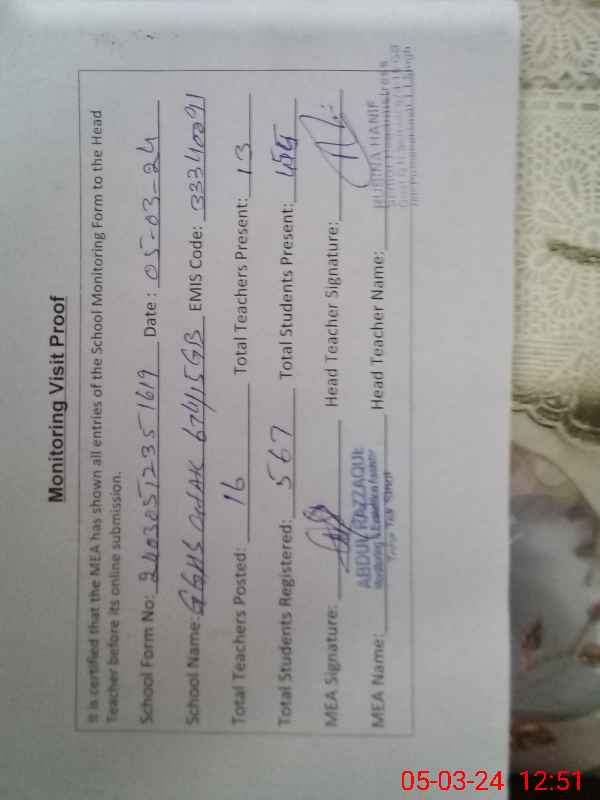 Monitoring Visit Proof
It is certified that the MEA has shown all entries of the School Monitoring Form to the Head
Teacher before its online submission.
School Form No: 2403051235 1619 Date: 05-03-24
School Name: GGHS 674/15GB EMIS Code: 33340091
Total Teachers Posted: 16 Total Teachers Present: 13
Total Students Registered: 567 Total Students Present:
MEA Signature: Head Teacher Signature:
MEA Name: ABDUL RAZZAQUE Head Teacher Name: RUBINA HANIF
Monitoring & Evaluation Assistant
Senior Headmistress
Toba Tek Singh
05-03-24 12:51